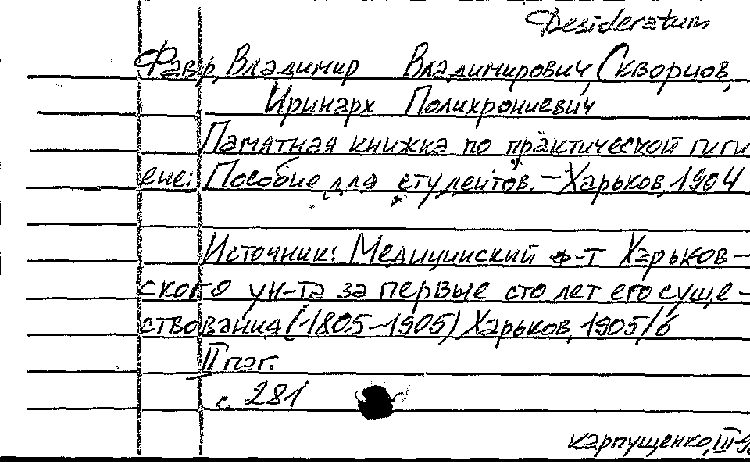 Desideratum
Фавр, Владимир Владимирович, Скворцов,
Иринарх Полихрониевич
Памятная книжка по практической гиги
ене: Пособие для студентов. – Харьков, 1904
Источник: Медицинский ф-т Харьков-
ского ун-та за первые сто лет его суще-
ствования (1805-1905) Харьков, 1905/6
II паг.
с. 281
карпущенко, III-